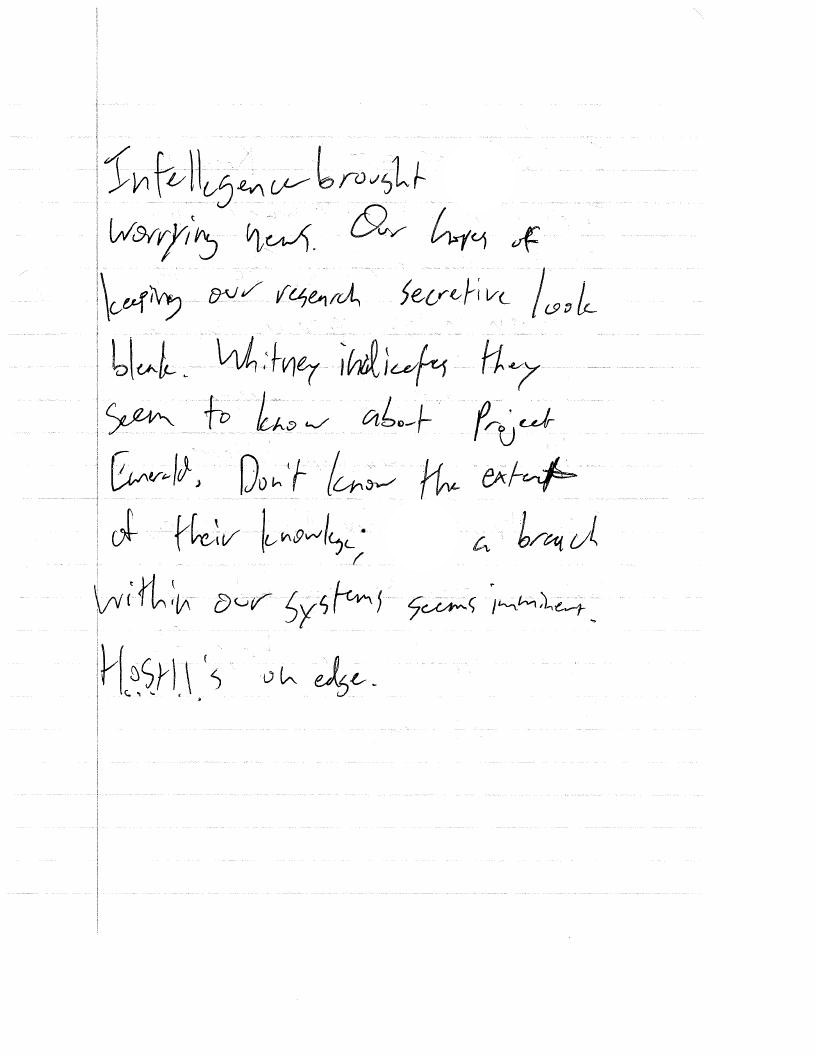 Intellegence brought
worrying news. Our hopes of
keeping our research secretive look
bleak. Whitney indicates they
seem to know about Project
Emerald. Don't know the extent
of their knowlege; a breach
within our systems seems imminent.
's on edge.